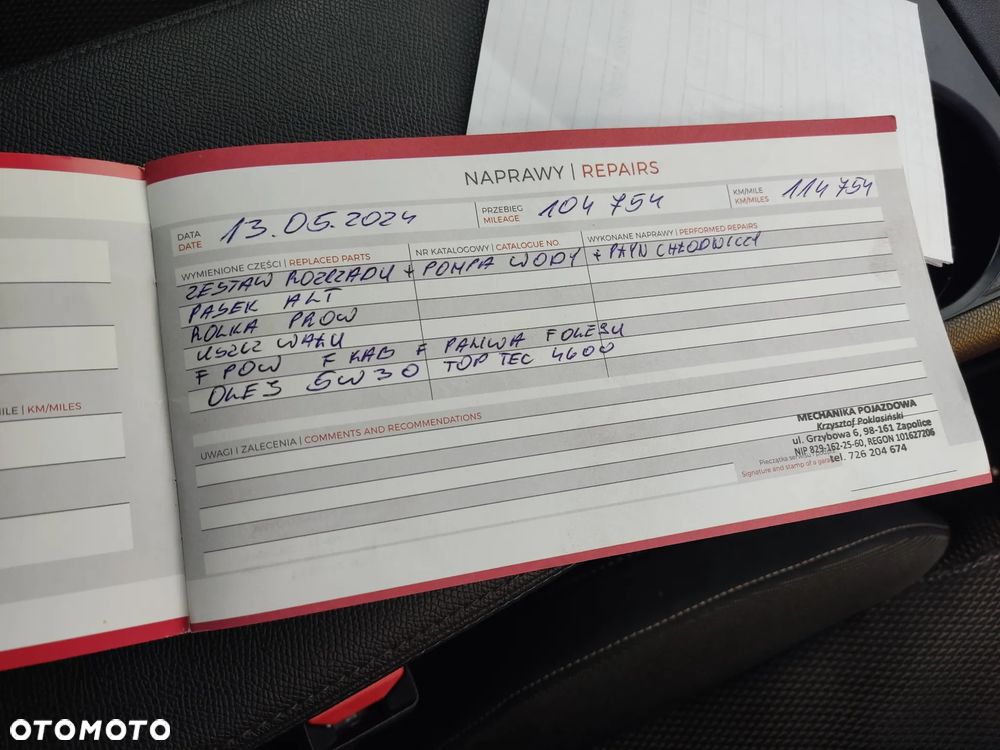 NAPRAWY | REPAIRS
DATA
DATE
13.05.2024
PRZEBIEG
MILEAGE
104 754
KM/MILE
KM/MILES
114 754
WYMIENIONE CZĘŚCI | REPLACED PARTS
NR KATALOGOWY | CATALOGUE NO.
WYKONANE NAPRAWY | PERFORMED REPAIRS
ZESTAW ROZRZĄDU + POMPA WODY + PŁYN CHŁODNICZY
PASEK ALT
ROLKA PROW
USZCZ WAŁU
F POW F KAB F PALIWA F OLEJU
OLEJ 5W30 TOP TEC 4600
UWAGI I ZALECENIA | COMMENTS AND RECOMMENDATIONS
MECHANIKA POJAZDOWA
Krzysztof Poklasiński
ul. Grzybowa 6, 98-161 Zapolice
NIP 829-162-25-60, REGON 101627206
tel. 726 204 674
Pieczątka serwisu i podpis
Signature and stamp of a garage
ILE | KM/MILES
OTOMOTO